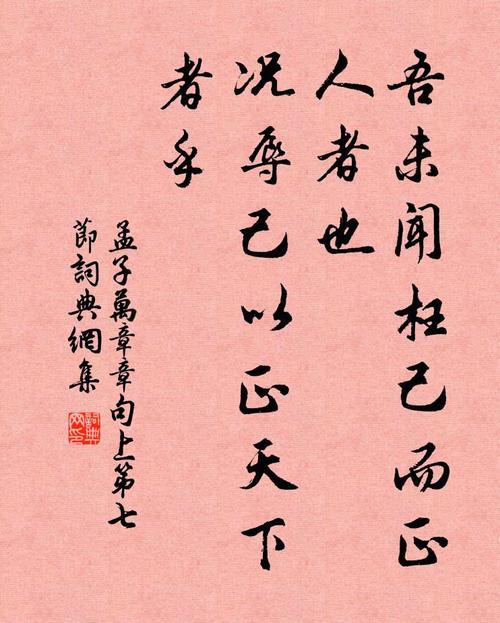 吾未闻枉己而正
人者也
况辱己以正天下
者乎
孟子萬章章句上第七
節詞典網集
詞典網印